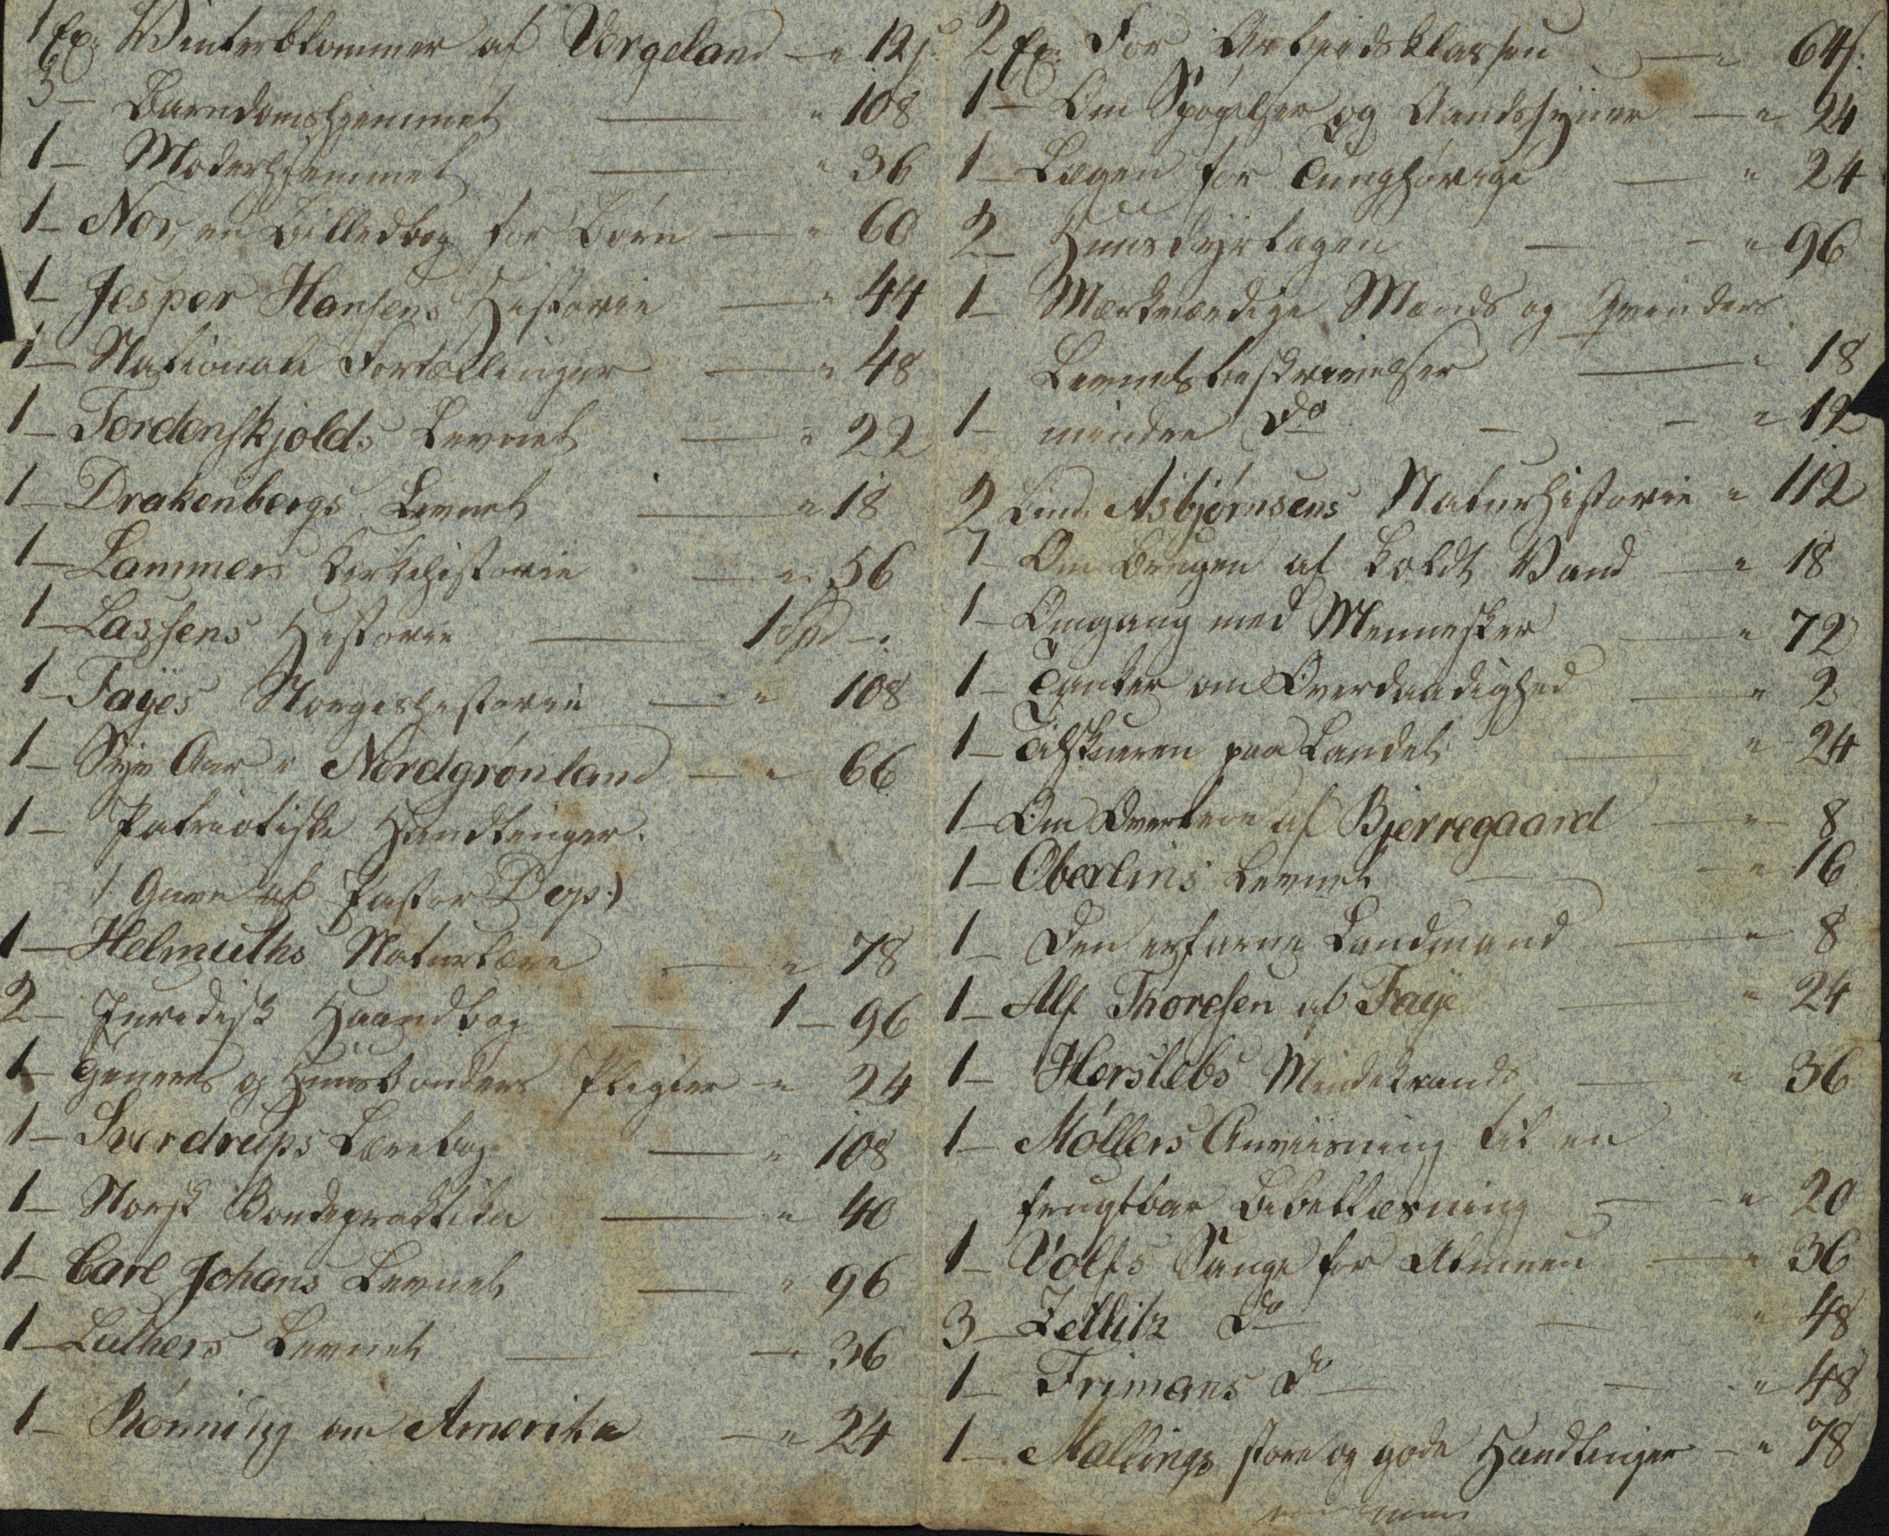 1 Ex: Vinterblommer af Vergeland — " 12 s.
3 — Barndomshjemmet — " 108
1 — Moderhjemmet — " 36
1 — Nor, en Billedbog for Børn — " 60
1 — Jesper Hansens Historie — " 44
1 — Nationale Fortællinger — " 48
1 — Tordenskjolds Levnet — " 22
1 — Drakenbergs Levnet — " 18
1 — Lammers Kirkehistorie — " 56
1 — Lassens Historie — 1 Spd — "
1 — Fayes Norgeshistorie — " 108
1 — Syv Aar i Nordgrønland — " 66
1 — Patriotiske Handlinger.
(Gave af Pastor Dop:)
1 — Helmuths Naturlære — " 78
2 — Juridisk Haandbog — 1 — 96
1 — Tjeneres og Huusbonders Pligter — " 24
1 — Sverdrups Lærebog — " 108
1 — Norsk Bondepraktika — " 40
1 — Carl Johans Levnet — " 96
1 — Luthers Levnet — " 36
1 — Rønning om Amerika — " 24
2 Ex: For Arbeidsklassen — " 64 s:
1 — Om Spøgelser og Aandesyner — " 24
1 — Lægen for Tunghørige — " 24
2 — Huusdyrlægen — " 96
1 — Mærkværdige Mænds og Qvinders
Levnetsbeskrivelser — " 18
1 — mindre do — " 12
2 Bind Asbjørnsens Naturhistorie " 112
1 — Om Brugen af koldt Vand — " 18
1 — Omgang med Mennesker — " 72
1 — Tanker om Overdaadighed — " 2
1 — Tilskueren paa Landet — " 24
1 — Om Overtroe af Bjerregaard — " 8
1 — Oberlins Levnet — " 16
1 — Den erfarne Landmand — " 8
1 — Alf Thoresen af Faye — " 24
1 — Herslebs Mindekrands — " 36
1 — Møllers Anviisning til en
frugtbar Bibellæsning — " 20
1 — Volfs Sange for Almuen — " 36
3 — Zetlitz do — " 48
1 — Frimans do — " 48
1 — Mallings store og gode Handlinger — " 78